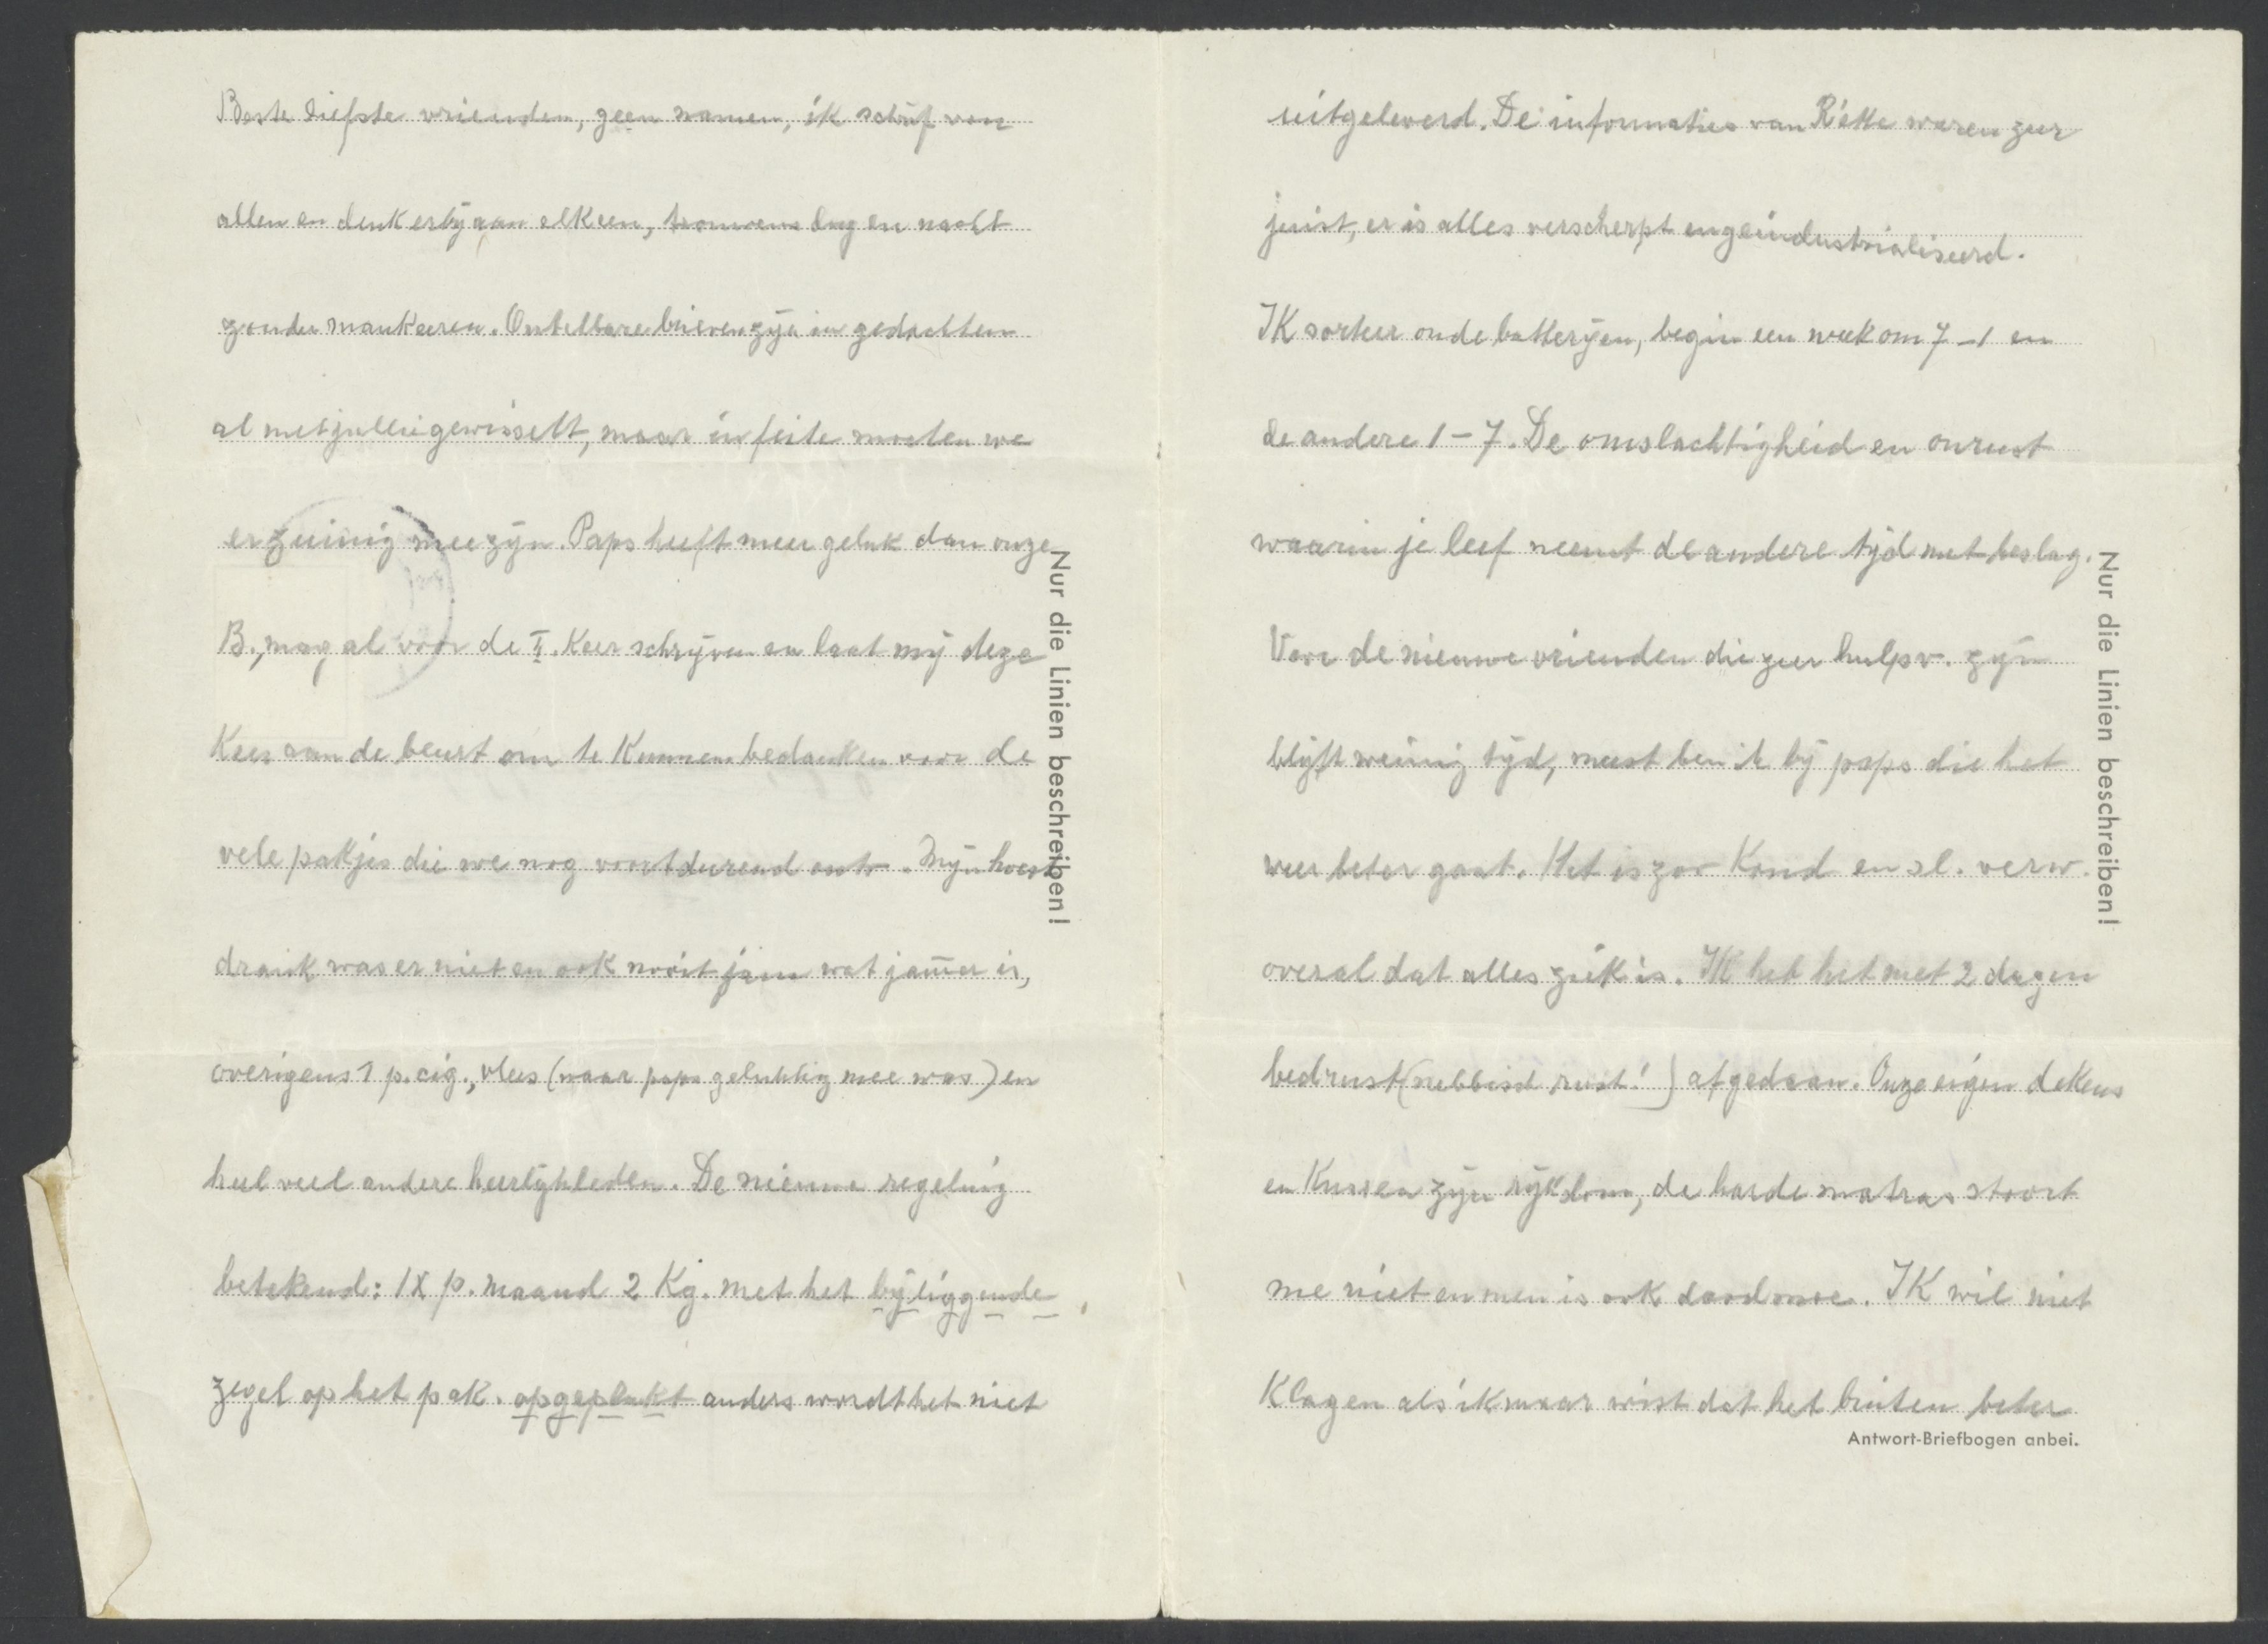 Beste liefste vrienden, geen namen, ik schrijf voor
allen en denk erbij aan elkeen, trouwens dag en nacht
zonder mankeeren. Ontelbare brieven zijn in gedachten
al met jullie gewisselt, maar in feite moeten we
er zuinig mee zijn. Paps heeft meer geluk dan onze
B., mag al voor de II. Keer schrijven en laat mij deze
Keer aan de beurt om te Kunnen bedanken voor de
vele pakjes die we nog voortdurend ontv. Mijn hoest
drank was er niet en ook nooit jam wat jam̄er is,
overigens 1 p. cig., vlees (waar paps gelukkig mee was) en
heel veel andere heerlijkheden. De nieuwe regeling
betekend: 1X p. maand 2 Kg. met het bijliggende
zegel op het pak. opgeplakt anders wordt het niet
Nur die Linien beschreiben!
uitgeleverd. De informaties van Rètte waren zeer
juist, er is alles verscherpt en geindustrialiseerd.
IK sorteer oude batterijen, begin een week om 7-1 en
de andere 1-7. De omslachtigheid en onrust
waarin je leef neemt de andere tijd met beslag.
Voor de nieuwe vrienden die zeer hulpv. zijn
blijft weinig tijd, meest ben ik bij paps die het
weer beter gaat. Het is zoo Koud en sl. verw.
overal dat alles ziek is. IK heb het met 2 dagen
bedrust (nebbisch rust!) afgedaan. Onze eigen dekens
en Kussen zijn rijkdom, de harde matras stoort
me niet en men is ook doodmoe. IK wil niet
Klagen als ik maar wist dat het buiten beter
Antwort-Briefbogen anbei.
Nur die Linien beschreiben!